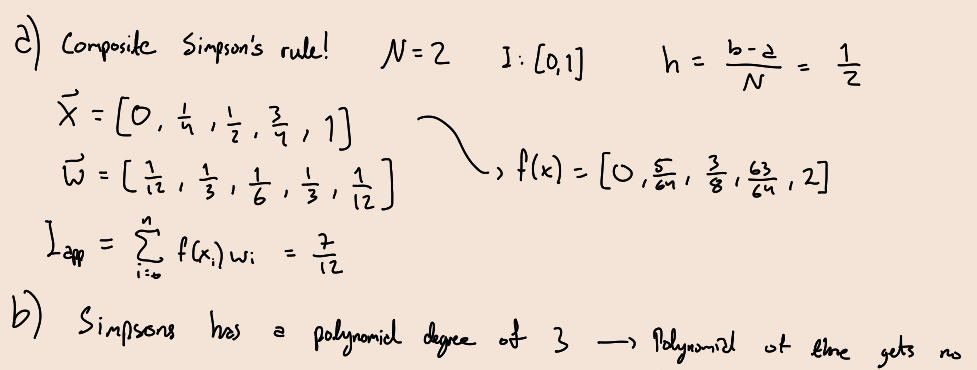 a) Composite Simpson's rule! N=2 I: [0,1] h = b-a/N = 1/2
x⃗ = [0, 1/4, 1/2, 3/4, 1]
w⃗ = [1/12, 1/3, 1/6, 1/3, 1/12] → f(x) = [0, 5/64, 3/8, 63/64, 2]
I_app = Σ_{i=0}^{n} f(x_i) w_i = 7/12
b) Simpsons has a polynomial degree of 3 → Polynomial of three gets no